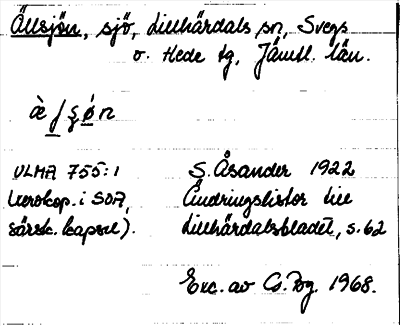 Ällsjön, sjö, Lillhärdals sn, Svegs
o. Hede tg, Jämtl. län.
ULMA 755:1 S. Åsander 1922
(xerokop. i SOA, Ändringslistor till
särsk. kapsel). Lillhärdalsbladet, s. 62
Exc. av 1968.